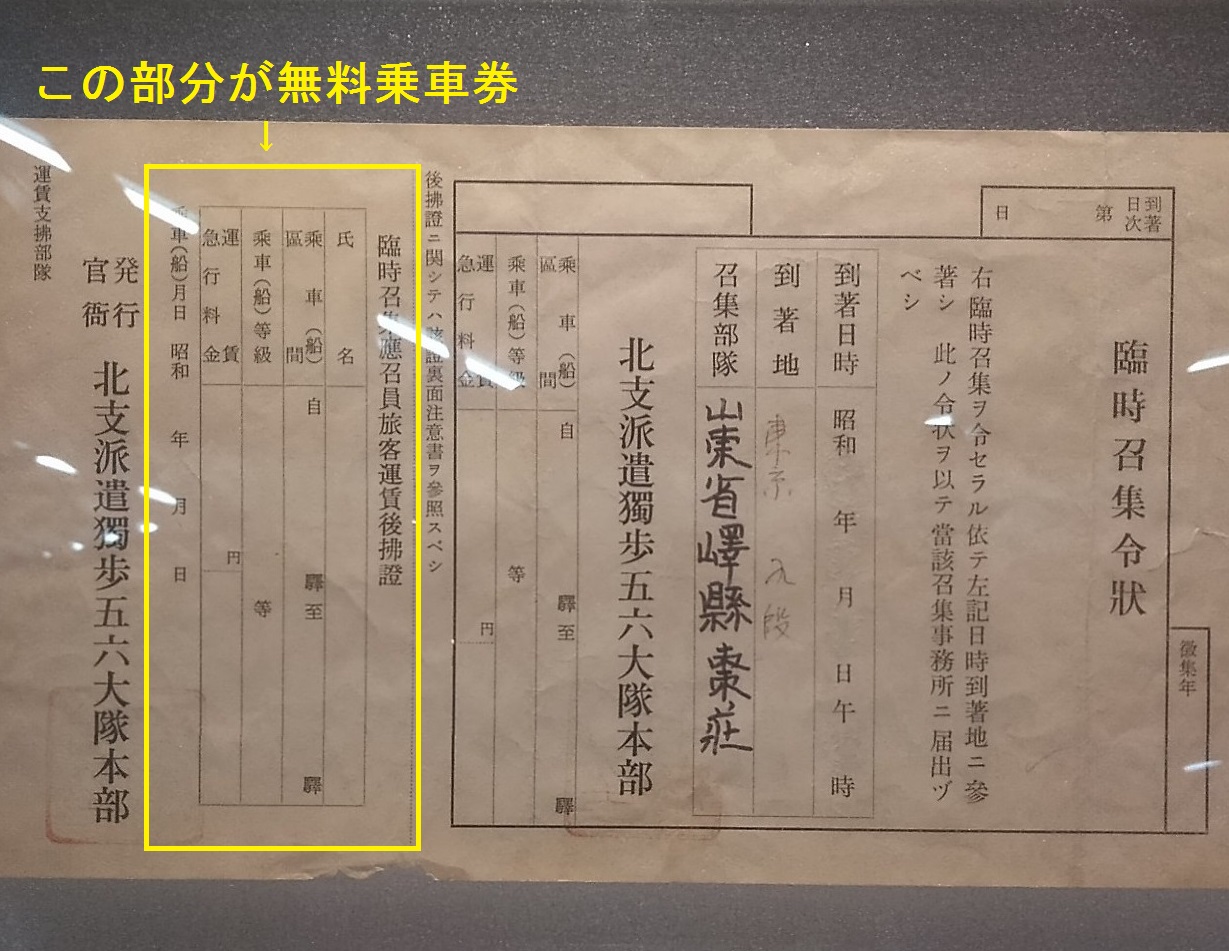 この部分が無料乗車券
↓
徴集年
臨時召集令狀
到著日次
第 日
右臨時召集ヲ令セラル依テ左記日時到著地ニ參
著シ此ノ令狀ヲ以テ當該召集事務所ニ届出ヅ
ベシ
到著日時 昭和 年 月 日午 時
到著地 東京 九段
召集部隊 山東省嶧縣棗莊
北支派遣獨歩五六大隊本部
乘車(船)區間 自 驛至 驛
乘車(船)等級 等
運賃急行料金 円
後拂證ニ関シテハ該證裏面注意書ヲ参照スベシ
臨時召集應召員旅客運賃後拂證
氏名
乘車(船)區間 自 驛至 驛
乘車(船)等級 等
運賃急行料金 円
乘車(船)月日 昭和 年 月 日
発行官衙 北支派遣獨歩五六大隊本部
運賃支拂部隊